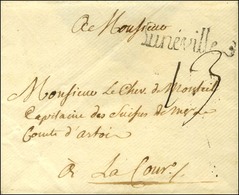 A Monsieur
Lunéville
13
Monsieur Le Chev. de Monteil
Capitaine des Suisses de Mgr
Comte d'artois
à La Cour